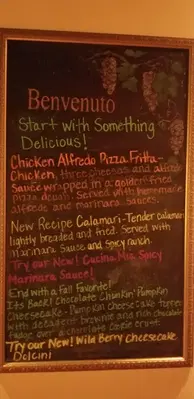 Benvenuto
Start with Something
Delicious!
Chicken Alfredo Pizza Fritta-
Chicken, three cheeses and alfredo
Sauce wrapped in a golden fried
Pizza dough. Served with homemade
alfredo and marinara sauces.
New Recipe Calamari-Tender calamari
lightly breaded and fried. Served with
Marinara Sauce and Spicy ranch.
Try our New! Cucina Mia Spicy
Marinara Sauce!
End with a Fall Favorite!
It's Back! Chocolate Chunkin' Pumpkin
Cheesecake-Pumpkin cheesecake
with decadent brownie and rich chocolate
chocolate cookie crust.
Try our New! Wild Berry Cheesecake
Dolcini